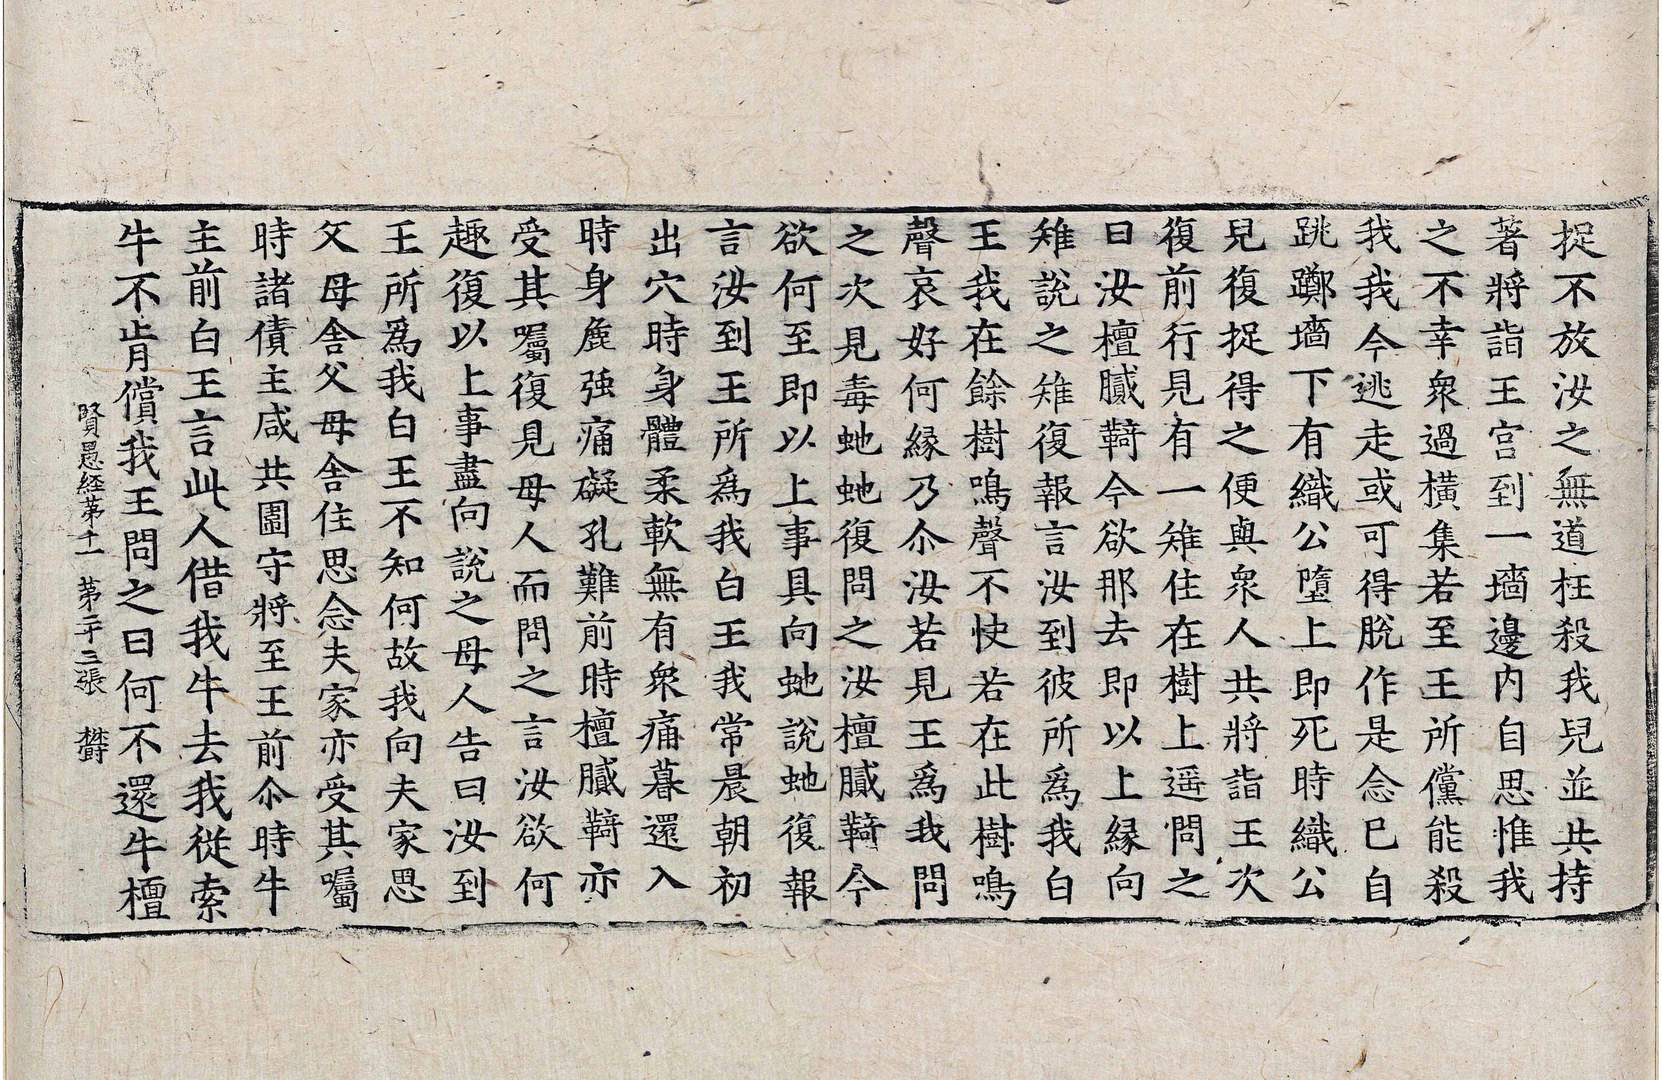 捉不放汝之無道枉殺我兒並共持
著將詣王宮到一墻邊內自思惟我
之不幸衆過橫集若至王所儻能殺
我我今逃走或可得脫作是念已自
跳躑墻下有織公墮上即死時織公
兒復捉得之便與衆人共將詣王次
復前行見有一雉住在樹上遥問之
曰汝檀膩䩭今欲那去即以上緣向
雉說之雉復報言汝到彼所爲我白
王我在餘樹鳴聲不快若在此樹鳴
聲哀好何緣乃尒汝若見王爲我問
之次見毒虵虵復問之汝檀膩䩭今
欲何至即以上事具向虵說虵復報
言汝到王所爲我白王我常晨朝初
出穴時身體柔軟無有衆痛暮還入
時身麁强痛礙孔難前時檀膩䩭亦
受其囑復見母人而問之言汝欲何
趣復以上事盡向說之母人告曰汝到
王所爲我白王不知何故我向夫家思
父母舍父母舍住思念夫家亦受其囑
時諸債主咸共圍守將至王前尒時牛
主前白王言此人借我牛去我從索
牛不肯償我王問之曰何不還牛檀
賢愚経苐十一 苐二十三張 欝